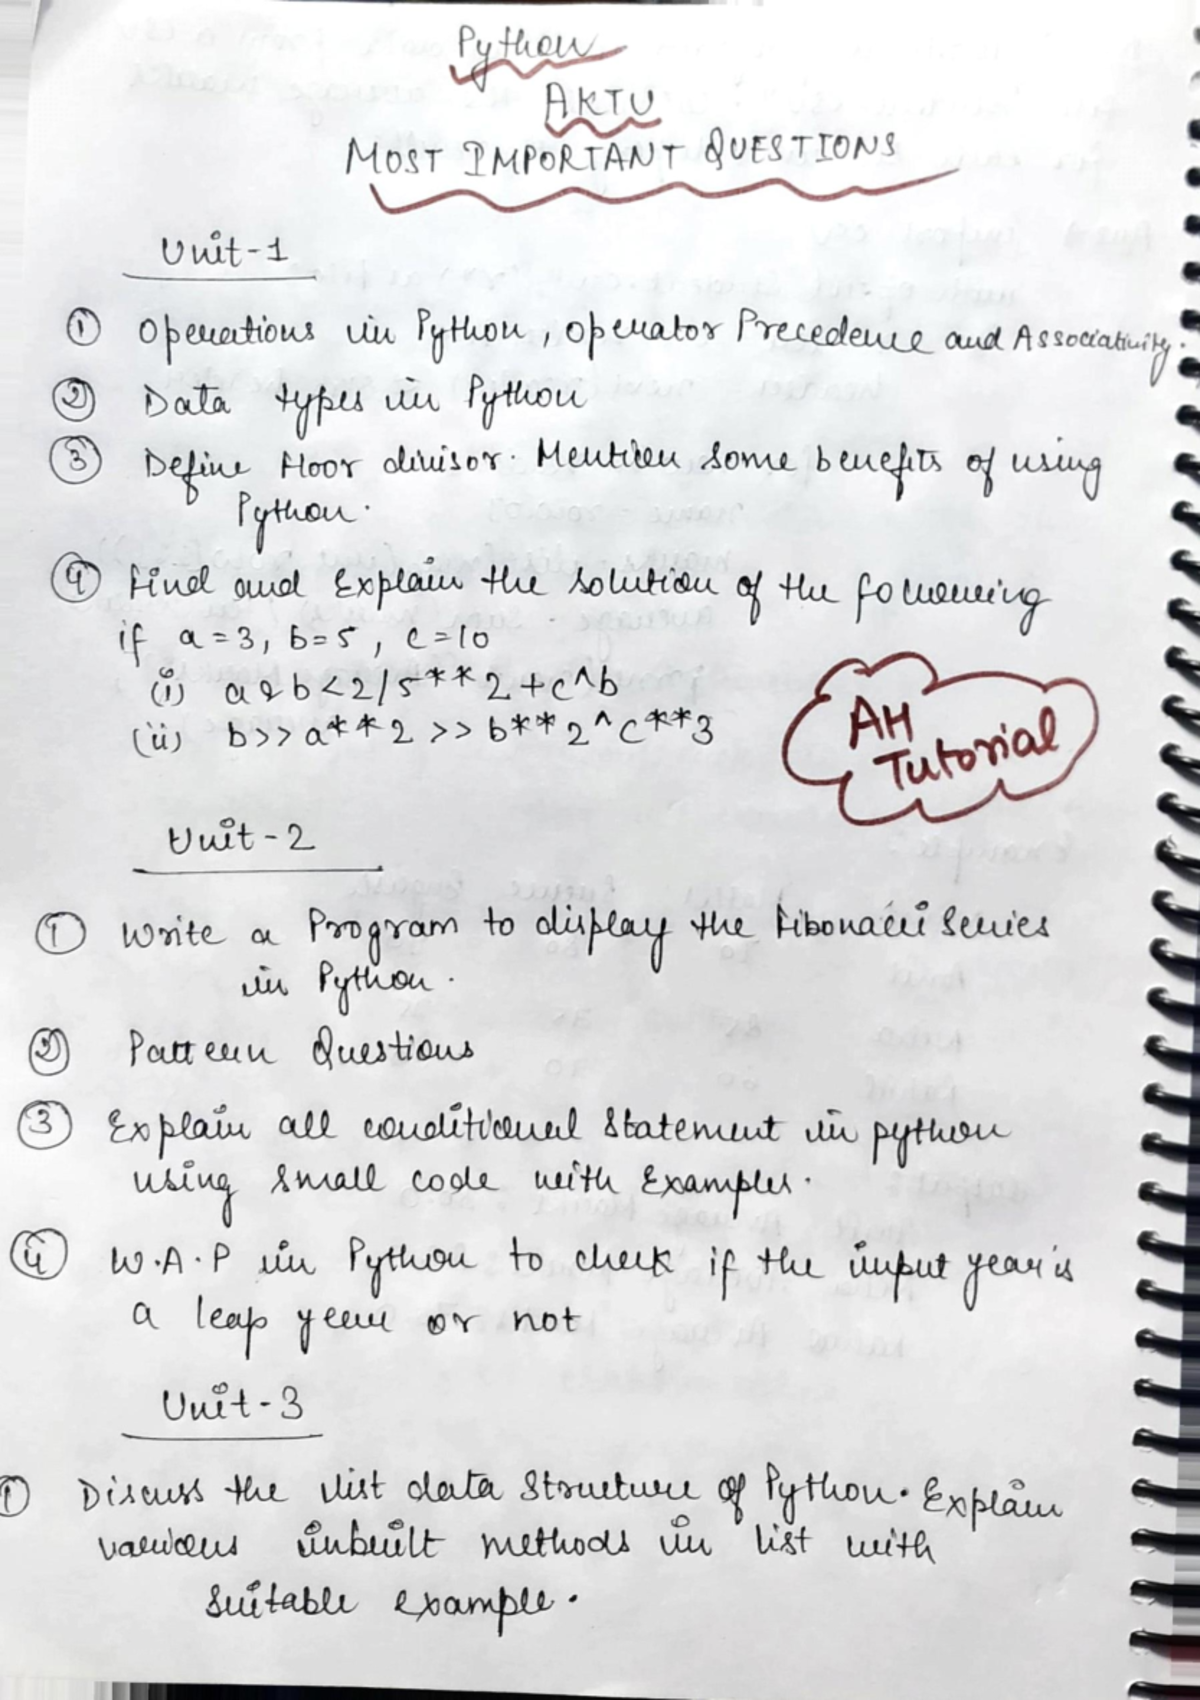 Python
AKTU
MOST IMPORTANT QUESTIONS
Unit-1
① Operations in Python, Operator Precedence and Associativity.
② Data types in Python
③ Define floor divisor. Mention some benefits of using
Python.
④ Find and Explain the solution of the following
if a=3, b=5, c=10
(i) a & b < 2/5**2+c^b
(ii) b>>a**2 >> b**2^c**3
AH
Tutorial
Unit-2
① Write a Program to display the Fibonacci Series
in Python.
② Pattern Questions
③ Explain all conditional Statement in python
using small code with Examples.
④ W.A.P in Python to check if the input year is
a leap year or not
Unit-3
① Discuss the list data Structure of Python. Explain
various inbuilt methods in list with
suitable example.